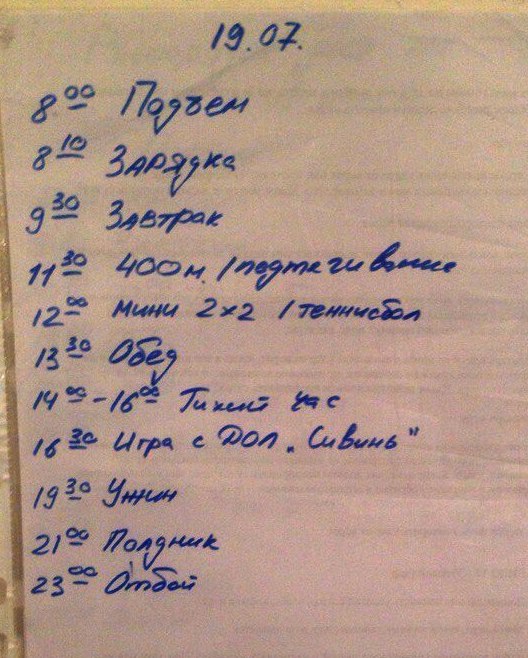 19.07.
8.00 Подъем
8 10 Зарядка
9 30 Завтрак
11 30 400м. / подтягивание
12 00 мини 2×2 / теннисбол
13 30 Обед
14 00 - 16 00 Тихий час
16 30 Игра с ДОЛ „Сивинь"
19 30 Ужин
21 00 Полдник
23 00 Отбой